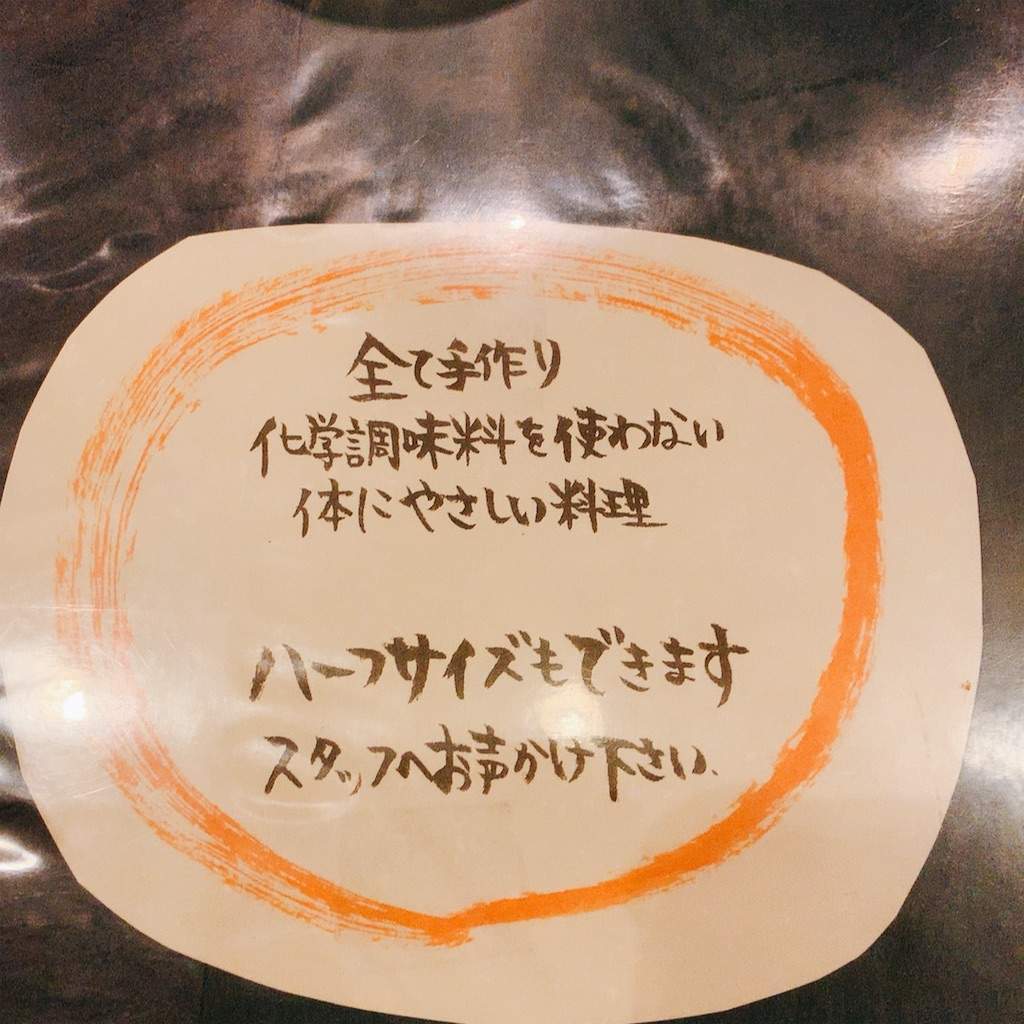 全て手作り
化学調味料を使わない
体にやさしい料理
ハーフサイズもできます
スタッフへお声かけ下さい、